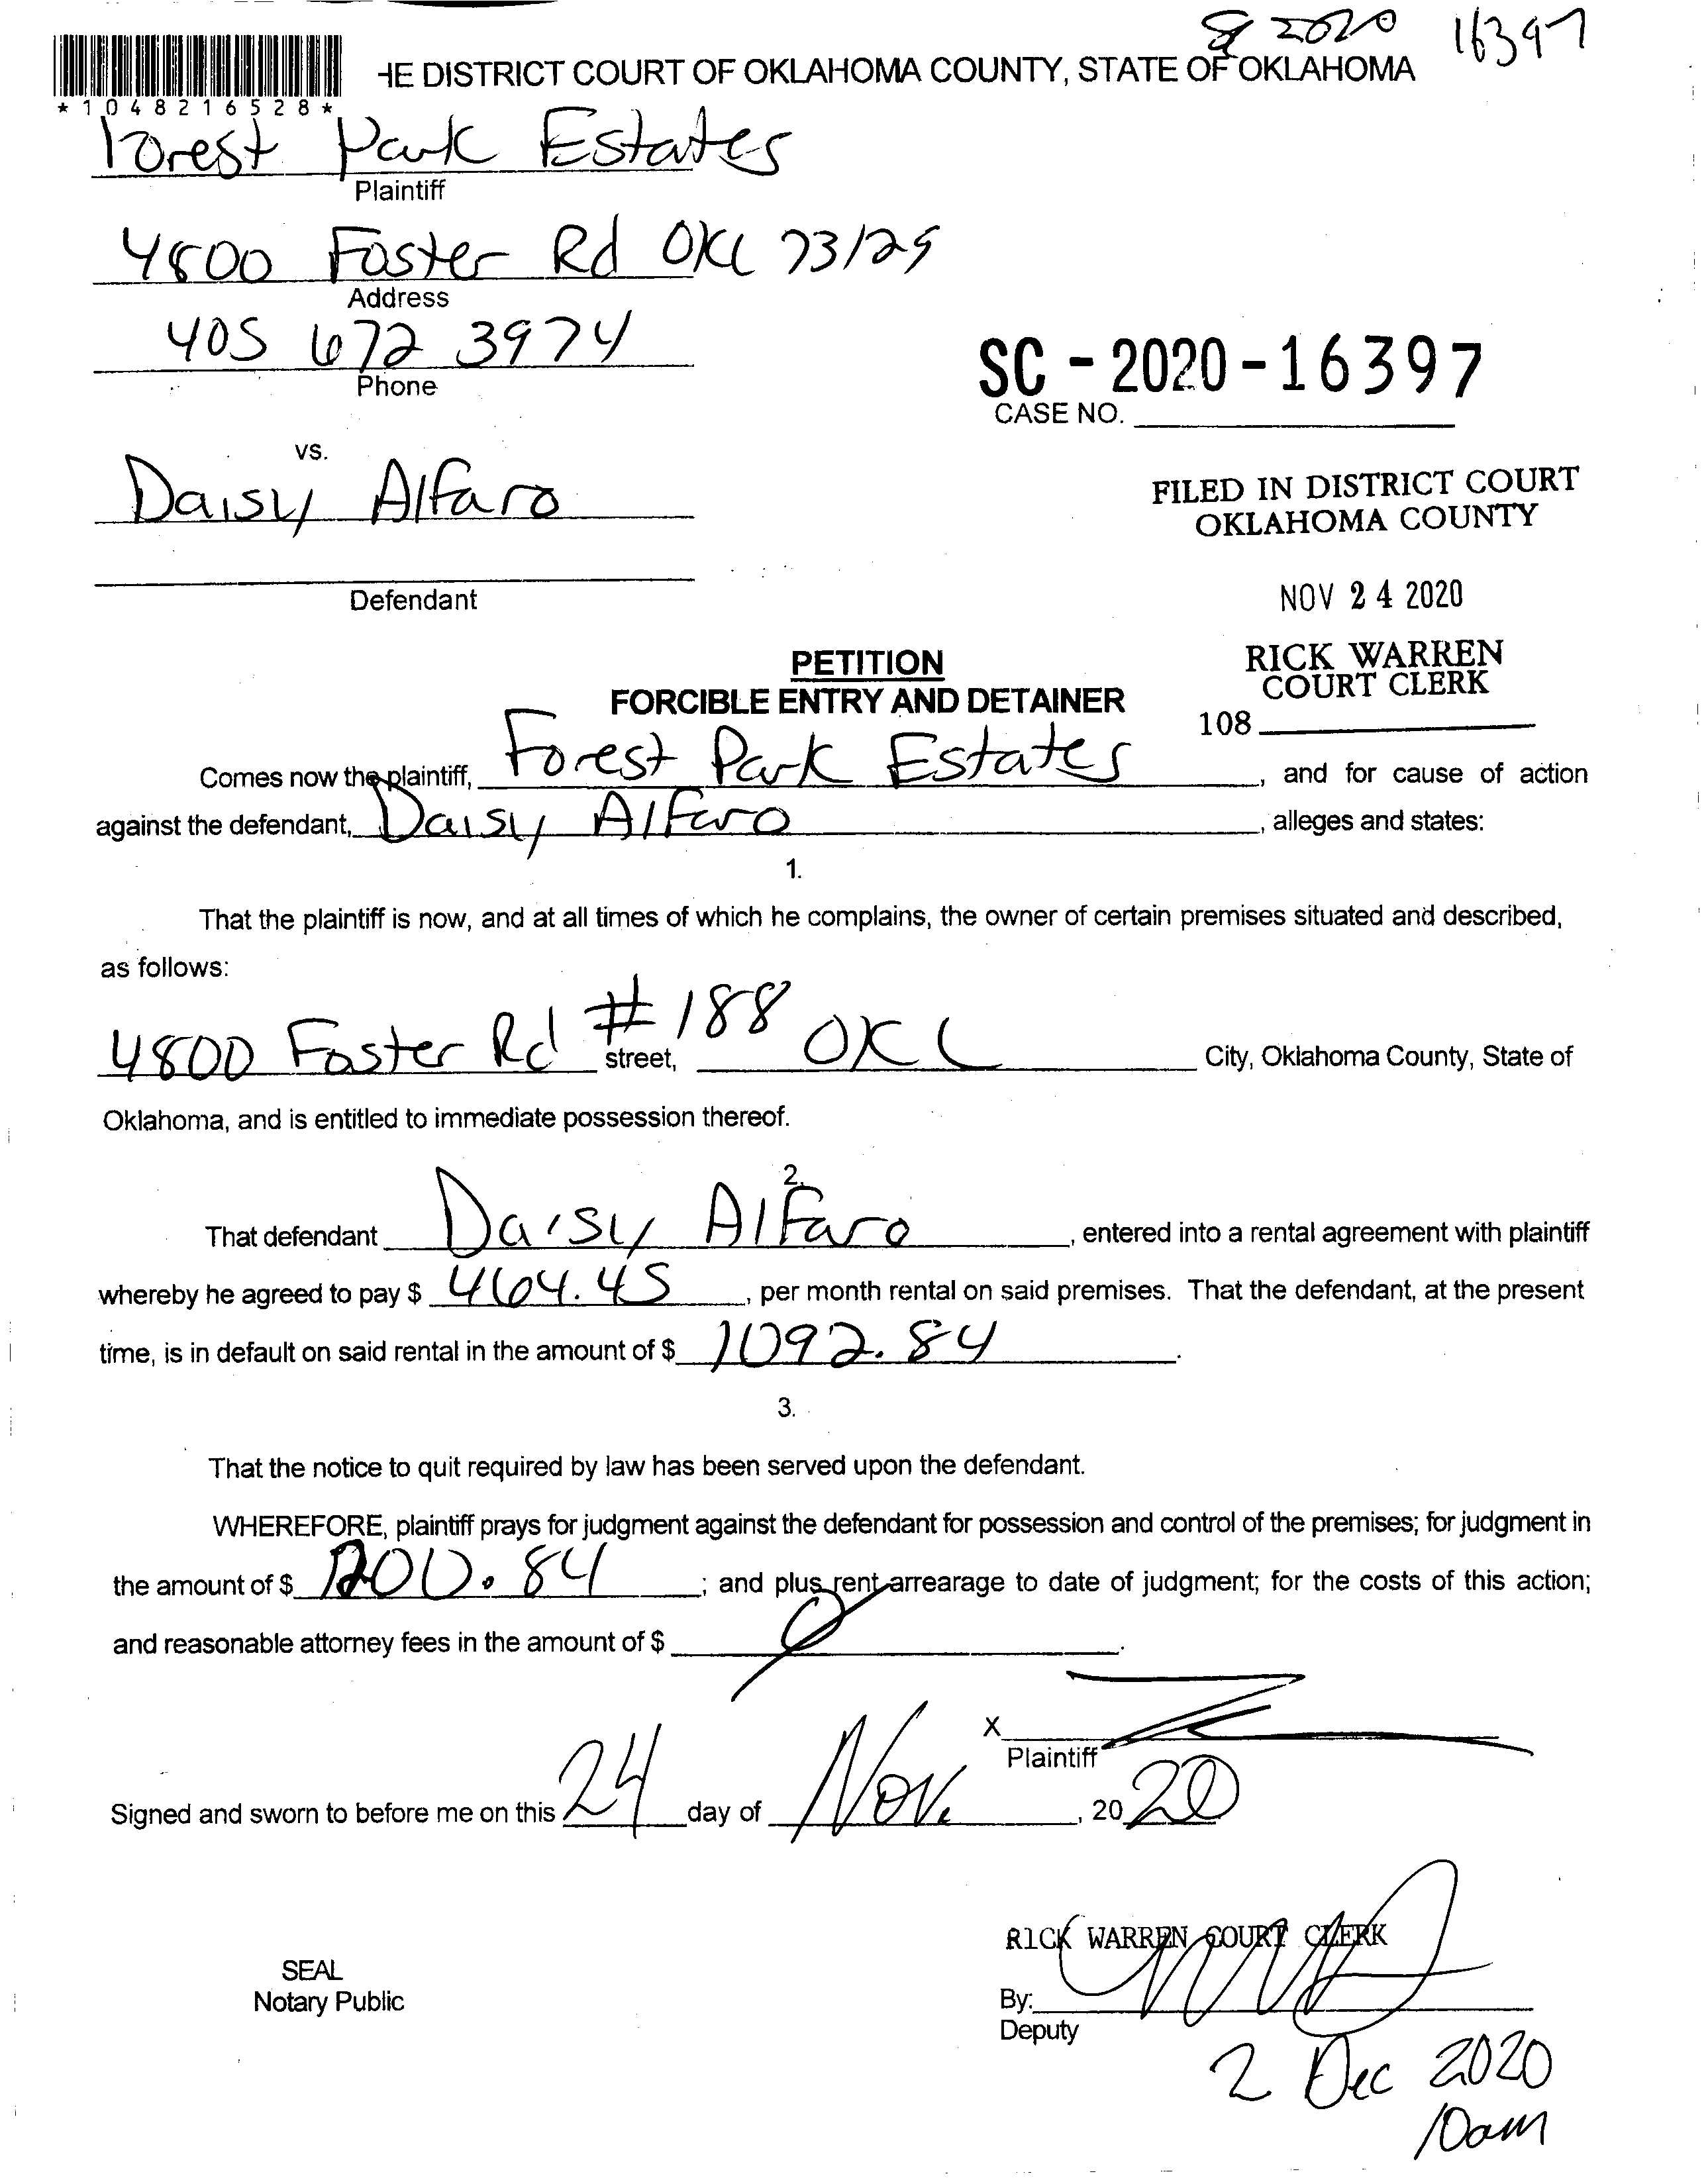 SC 2020 16397
HE DISTRICT COURT OF OKLAHOMA COUNTY, STATE OF OKLAHOMA
*1048216528*
Forest Park Estates
Plaintiff
4800 Foster Rd OKC 73129
Address
405 672 3974
Phone
SC-2020-16397
CASE NO.
vs.
Daisy Alfaro
FILED IN DISTRICT COURT
OKLAHOMA COUNTY
Defendant
NOV 24 2020
RICK WARREN
COURT CLERK
108
PETITION
FORCIBLE ENTRY AND DETAINER
Comes now the plaintiff, Forest Park Estates, and for cause of action
against the defendant, Daisy Alfaro, alleges and states:
1.
That the plaintiff is now, and at all times of which he complains, the owner of certain premises situated and described,
as follows:
4800 Foster Rd #188 street, OKC City, Oklahoma County, State of
Oklahoma, and is entitled to immediate possession thereof.
2.
That defendant Daisy Alfaro, entered into a rental agreement with plaintiff
whereby he agreed to pay $ 464.45, per month rental on said premises. That the defendant, at the present
time, is in default on said rental in the amount of $ 1092.84.
3.
That the notice to quit required by law has been served upon the defendant.
WHEREFORE, plaintiff prays for judgment against the defendant for possession and control of the premises; for judgment in
the amount of $ 1200.84; and plus rent arrearage to date of judgment; for the costs of this action;
and reasonable attorney fees in the amount of $ 0.
X
Plaintiff
Signed and sworn to before me on this 24 day of Nov., 2020
RICK WARREN COURT CLERK
SEAL
Notary Public
By:
Deputy
2 Dec 2020
10am